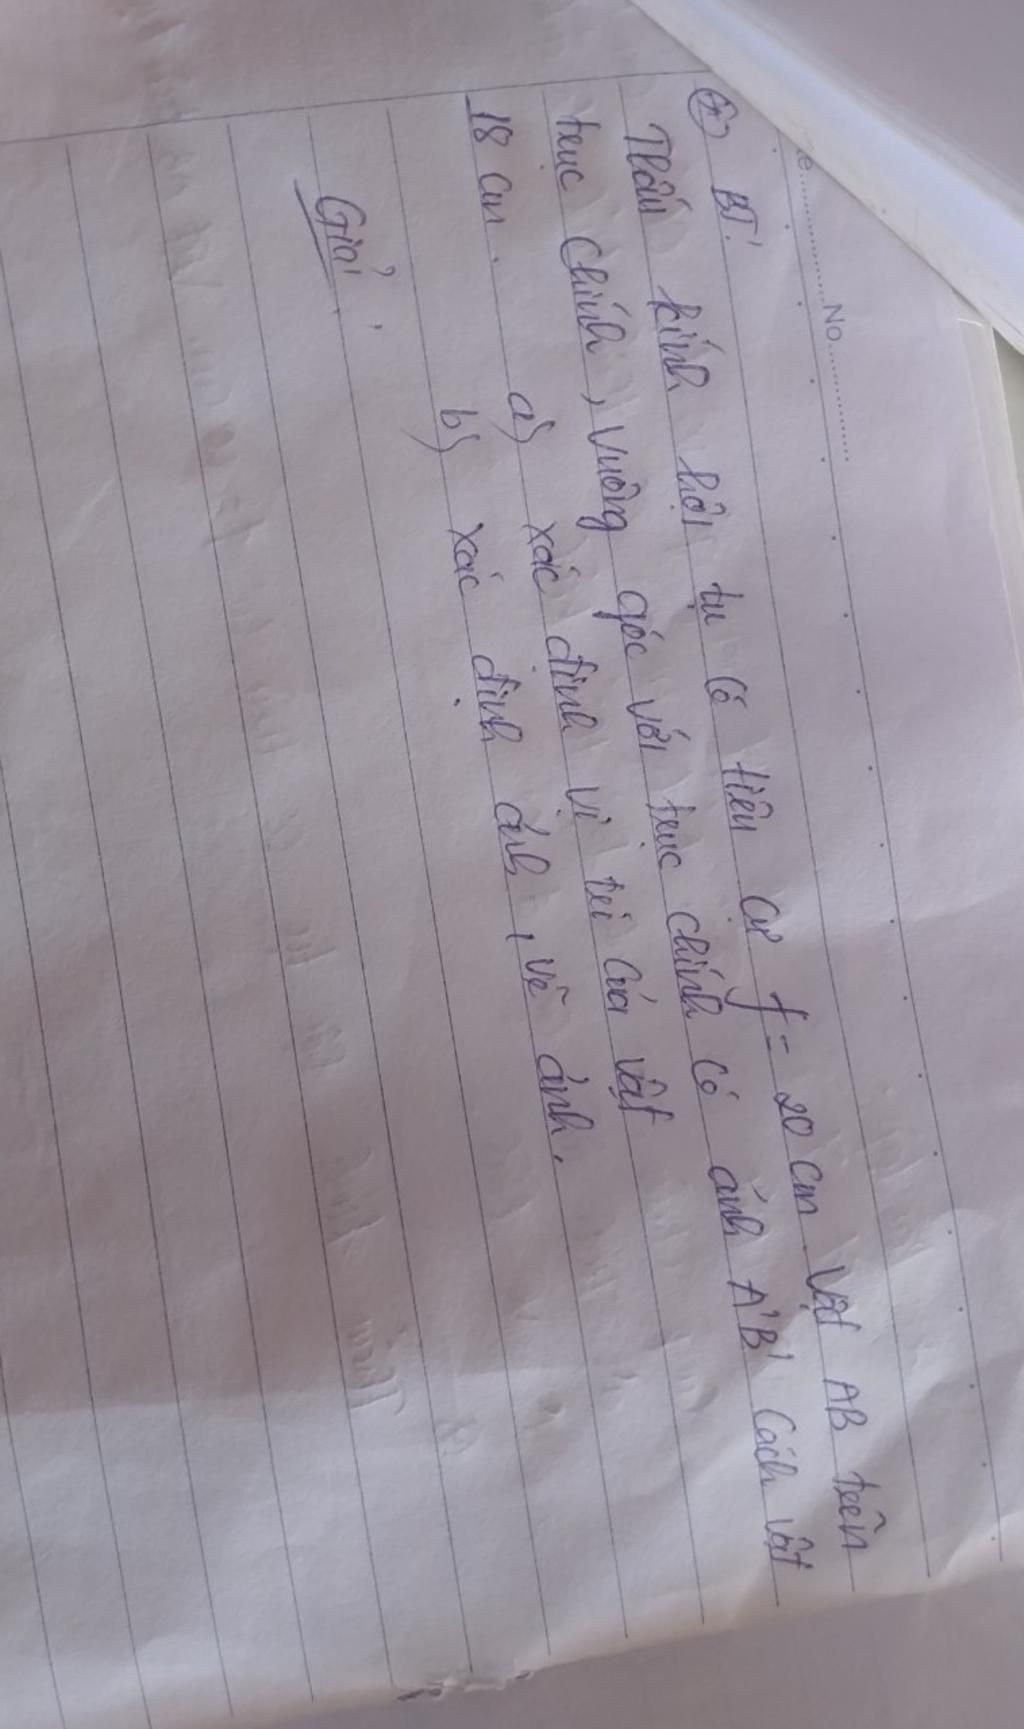 No.............
BT:
Thấu kính hội tụ có tiêu cự f = 20 cm. Vật AB trên
trục chính, vuông góc với trục chính có ảnh A'B' cách vật
18 cm.
a) xác định vị trí của vật
b) xác định ảnh, vẽ ảnh.
Giải: